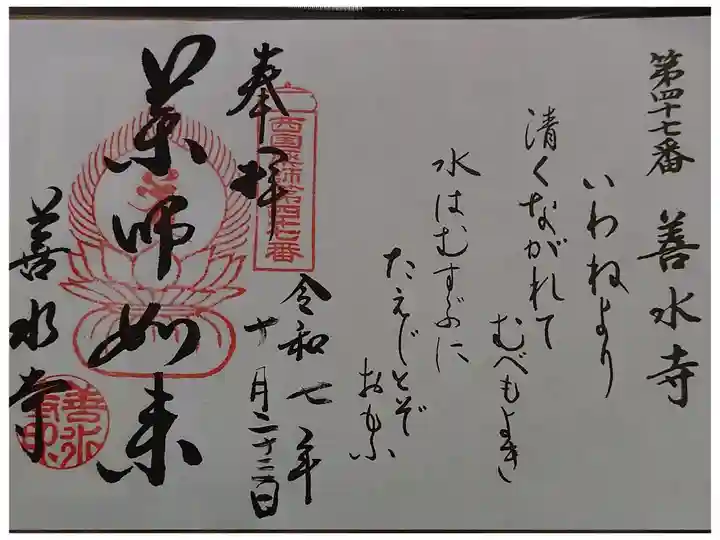 第四十七番 善水寺
いわねより
清くながれて
むべもよき
水はむすぶに
たえじとぞ
おもふ
奉拝
西国薬師第四十七番
令和七年
十月二十三日
薬師如来
善水寺